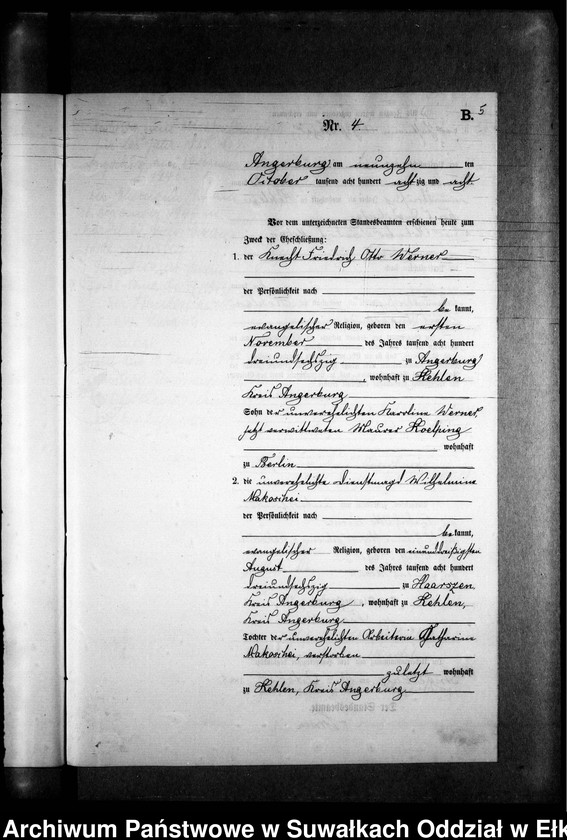 B. 5
Nr. 4.
Angerburg am neunzehn ten
October tausend acht hundert achtzig und acht.
Vor dem unterzeichneten Standesbeamten erschienen heute zum
Zweck der Eheschließung:
1. der Knecht Friedrich Otto Werner
der Persönlichkeit nach
be kannt,
evangelischer Religion, geboren den ersten
November des Jahres tausend acht hundert
dreiundsechszig zu Angerburg
, wohnhaft zu Kehlen
Kreis Angerburg
Sohn der unverehelichten Karoline Werner,
jetzt verwittweten Maurer
wohnhaft
zu Berlin
2. die unverehelichte Dienstmagd Wilhelmine
der Persönlichkeit nach
be kannt,
evangelischer Religion, geboren den einunddreißigsten
August des Jahres tausend acht hundert
dreiundsechszig zu Haarszen
Kreis Angerburg, wohnhaft zu Kehlen,
Kreis Angerburg
Tochter der unverehelichten Arbeiterin Catharine
verstorben
zuletzt wohnhaft
zu Kehlen, Kreis Angerburg
Archiwum Państwowe w Suwałkach Oddział w Ełk